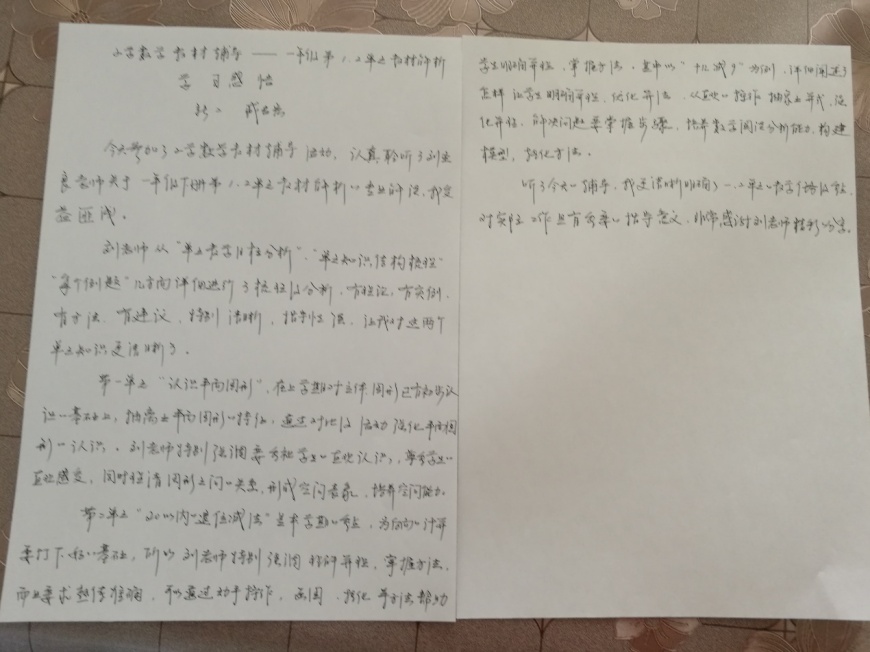 小学数学教材辅导——一年级第1.2单元教材解析
学习感悟
今天参加了小学数学教材辅导活动,认真聆听了刘
良老师关于一年级下册第1.2单元教材解析的专业解说,我受
益匪浅。
刘老师从“单元教学目标分析”、“单元知识结构梳理”
“每个例题”几方面详细进行了梳理及分析,有理论,有实例,
有方法、有建议,特别清晰,指导性强,让我对这两个
单元知识更清晰了。
第一单元“认识平面图形”,在上学期对立体图形已有初步认
识的基础上,抽离出平面图形的特征,通过对比及活动强化平面图
形的认识。刘老师特别强调要重视学生的直观认识,尊重学生的
直观感受,同时理清图形之间的关系,形成空间表象,培养空间能力。
第二单元“20以内的退位减法”是本学期的重点,为后面的计算
要打下的基础,所以刘老师特别强调理解算理,掌握方法,
而且要求熟练准确,可以通过动手操作,画图、转化等方法帮助
学生明确算理,掌握方法。其中以“十几减9”为例,详细阐述了
怎样让学生明确算理,优化算法,从直观操作抽象出算式,强
化算理。解决问题要掌握步骤,培养数学阅读分析能力,构建
模型,转化方法。
听了今天的辅导,我更清晰明确了一.二单元的教学
对实际工作具有重要的指导意义,非常感谢刘老师精彩的分享。